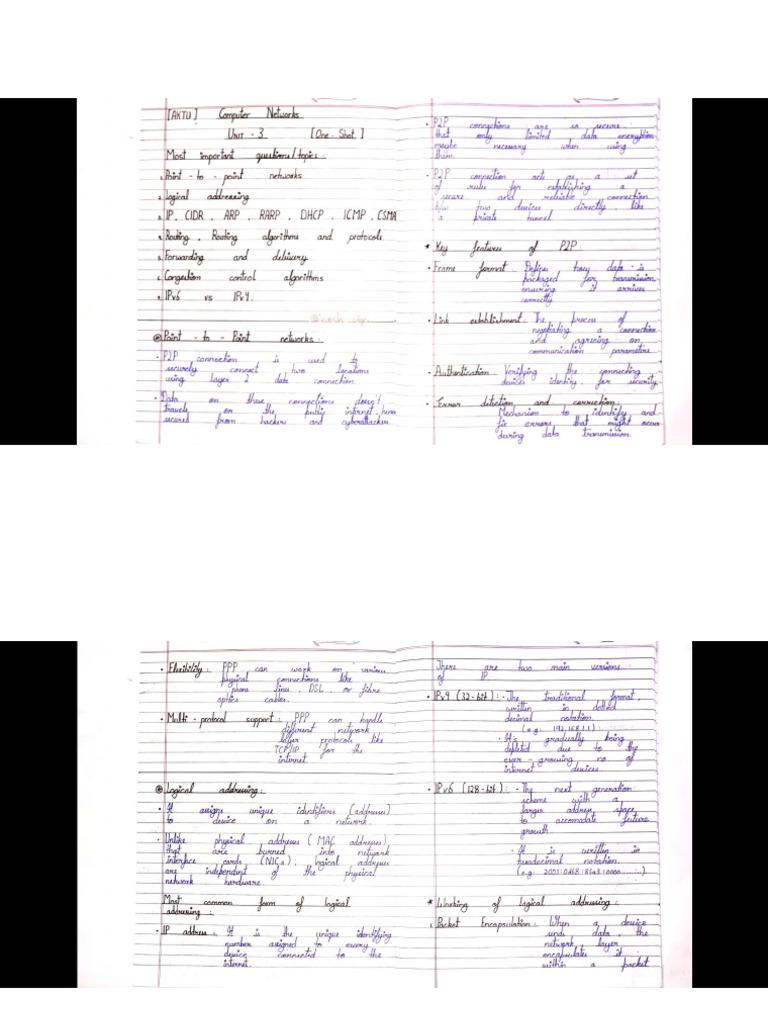 [AKTU] Computer Networks
Unit - 3 [One-Shot]
Most important questions/topics:
1. Point - to - point networks
2. Logical addressing
3. IP, CIDR, ARP, RARP, DHCP, ICMP, CSMA
4. Routing, Routing algorithms and protocols
5. Forwarding and delivery
6. Congestion control algorithms
7. IPv6 vs IPv4.
Point - to - Point networks:
• P2P connection is used to
securely connect two locations
using Layer 2 data connection
• Data on these connections doesn't
travels on the public internet, hence
secured from hackers and cyberattacker
• P2P connections are so secure
that only limited data encryption
maybe necessary when using
them.
• P2P connection acts as a set
of rules for establishing a
secure and reliable connection
b/w two devices directly, like
a private tunnel
* Key features of P2P:
• Frame format: Defines how data is
packaged for transmission
ensuring it arrives
correctly
• Link establishment: The process of
negotiating a connection
and agreeing on
communication parameters
• Authentication: Verifying the connecting
devices identity for security
• Error detection and correction:
Mechanism to identify and
fix errors that might occur
during data transmission
• Flexibility: PPP can work on various
physical connections like
phone lines, DSL, or fibre
optics cables.
• Multi-protocol support: PPP can handle
different network
layer protocols like
TCP/IP for the
internet.
Logical addressing:
• It assigns unique identifiers (addresses)
to device on a network.
• Unlike physical addresses (MAC addresses)
that are burned into network
interface cards (NICs), logical addresses
are independent of the physical
network hardware.
Most common form of logical
addressing:
• IP address: It is the unique identifying
number assigned to every
device connected to the
internet.
There are two main versions
of IP
• IPv4 (32-bit): • The traditional format,
written in dotted
decimal notation.
(e.g: 192.168.1.1)
• It's gradually being
depleted due to the
ever-growing no of
internet devices.
• IPv6 (128-bit): • The next generation
scheme with a
larger address space
to accomodate future
growth
• It is written in
hexadecimal notation.
* Working of Logical addressing:
1. Packet Encapsulation: When a device
sends data, the
network layer
encapsulates it
within a packet